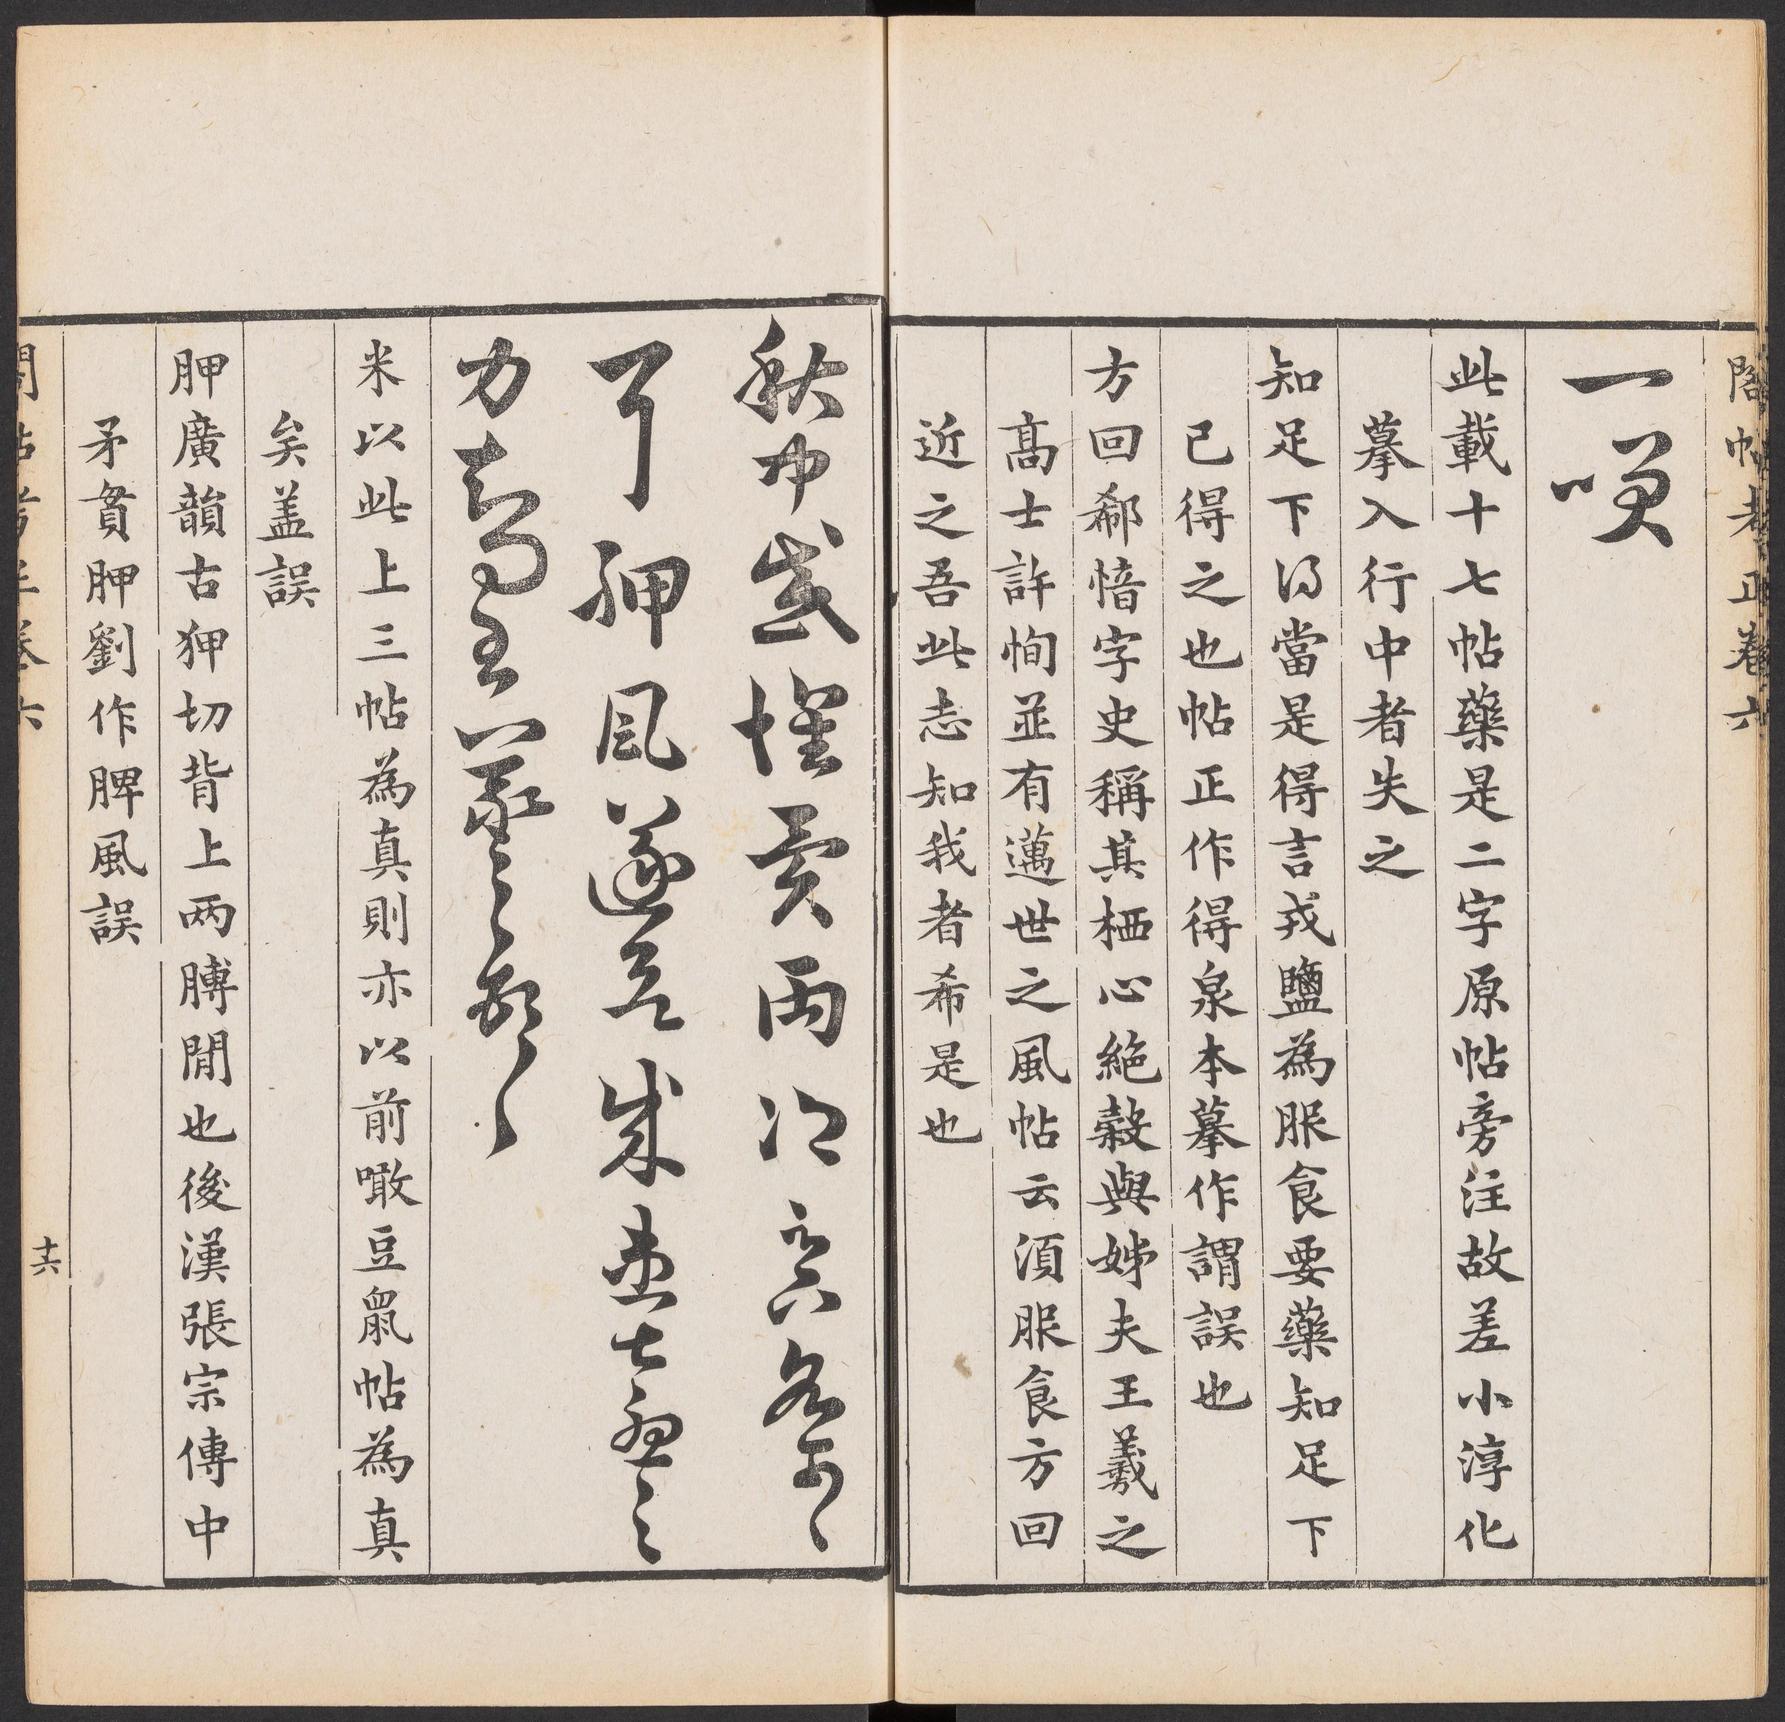 閣帖考正卷六
一嘆
此載十七帖藥是二字原帖旁注故差小淳化
摹入行中者失之
知足下得當是得言戎鹽為服食要藥知足下
已得之也帖正作得泉本摹作謂誤也
方回郗愔字史稱其栖心絶穀與姊夫王羲之
高士許恂並有邁世之風帖云須服食方回
近之吾此志知我者希是也
秋中感懷
雨冷
胛風遂
力
米以此上三帖為真則亦以前噉豆鼠帖為真
矣盖誤
胛廣韻古狎切背上两膊閒也後漢張宗傳中
矛貫胛劉作脾風誤
十六